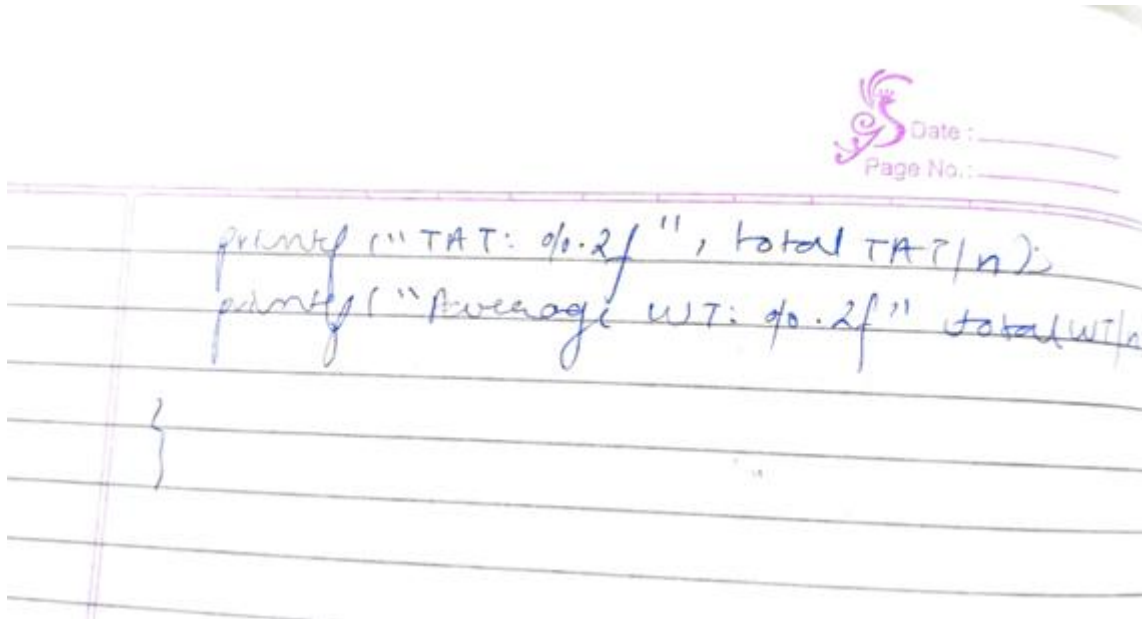 Date :
Page No.:
printf ("TAT: %.2f", total TAT/n);
printf ("Average WT: %.2f" total WT/n
}